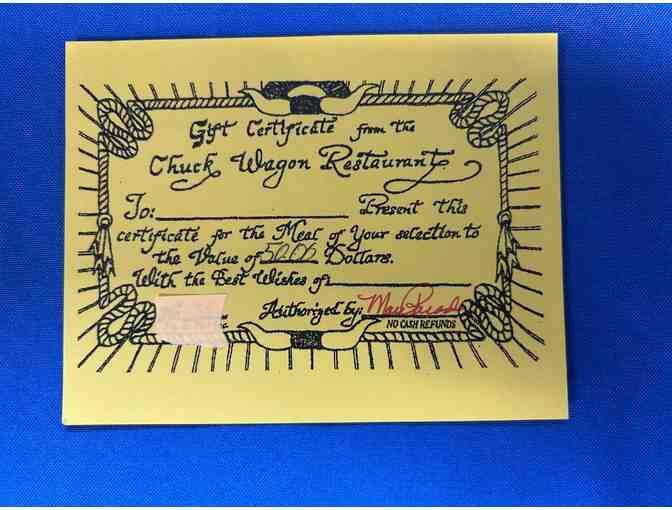 Gift Certificate from the
Chuck Wagon Restaurant
To: Present this
certificate for the Meal of Your selection to
the Value of 50.00 Dollars.
With the Best Wishes of
Authorized by:
NO CASH REFUNDS